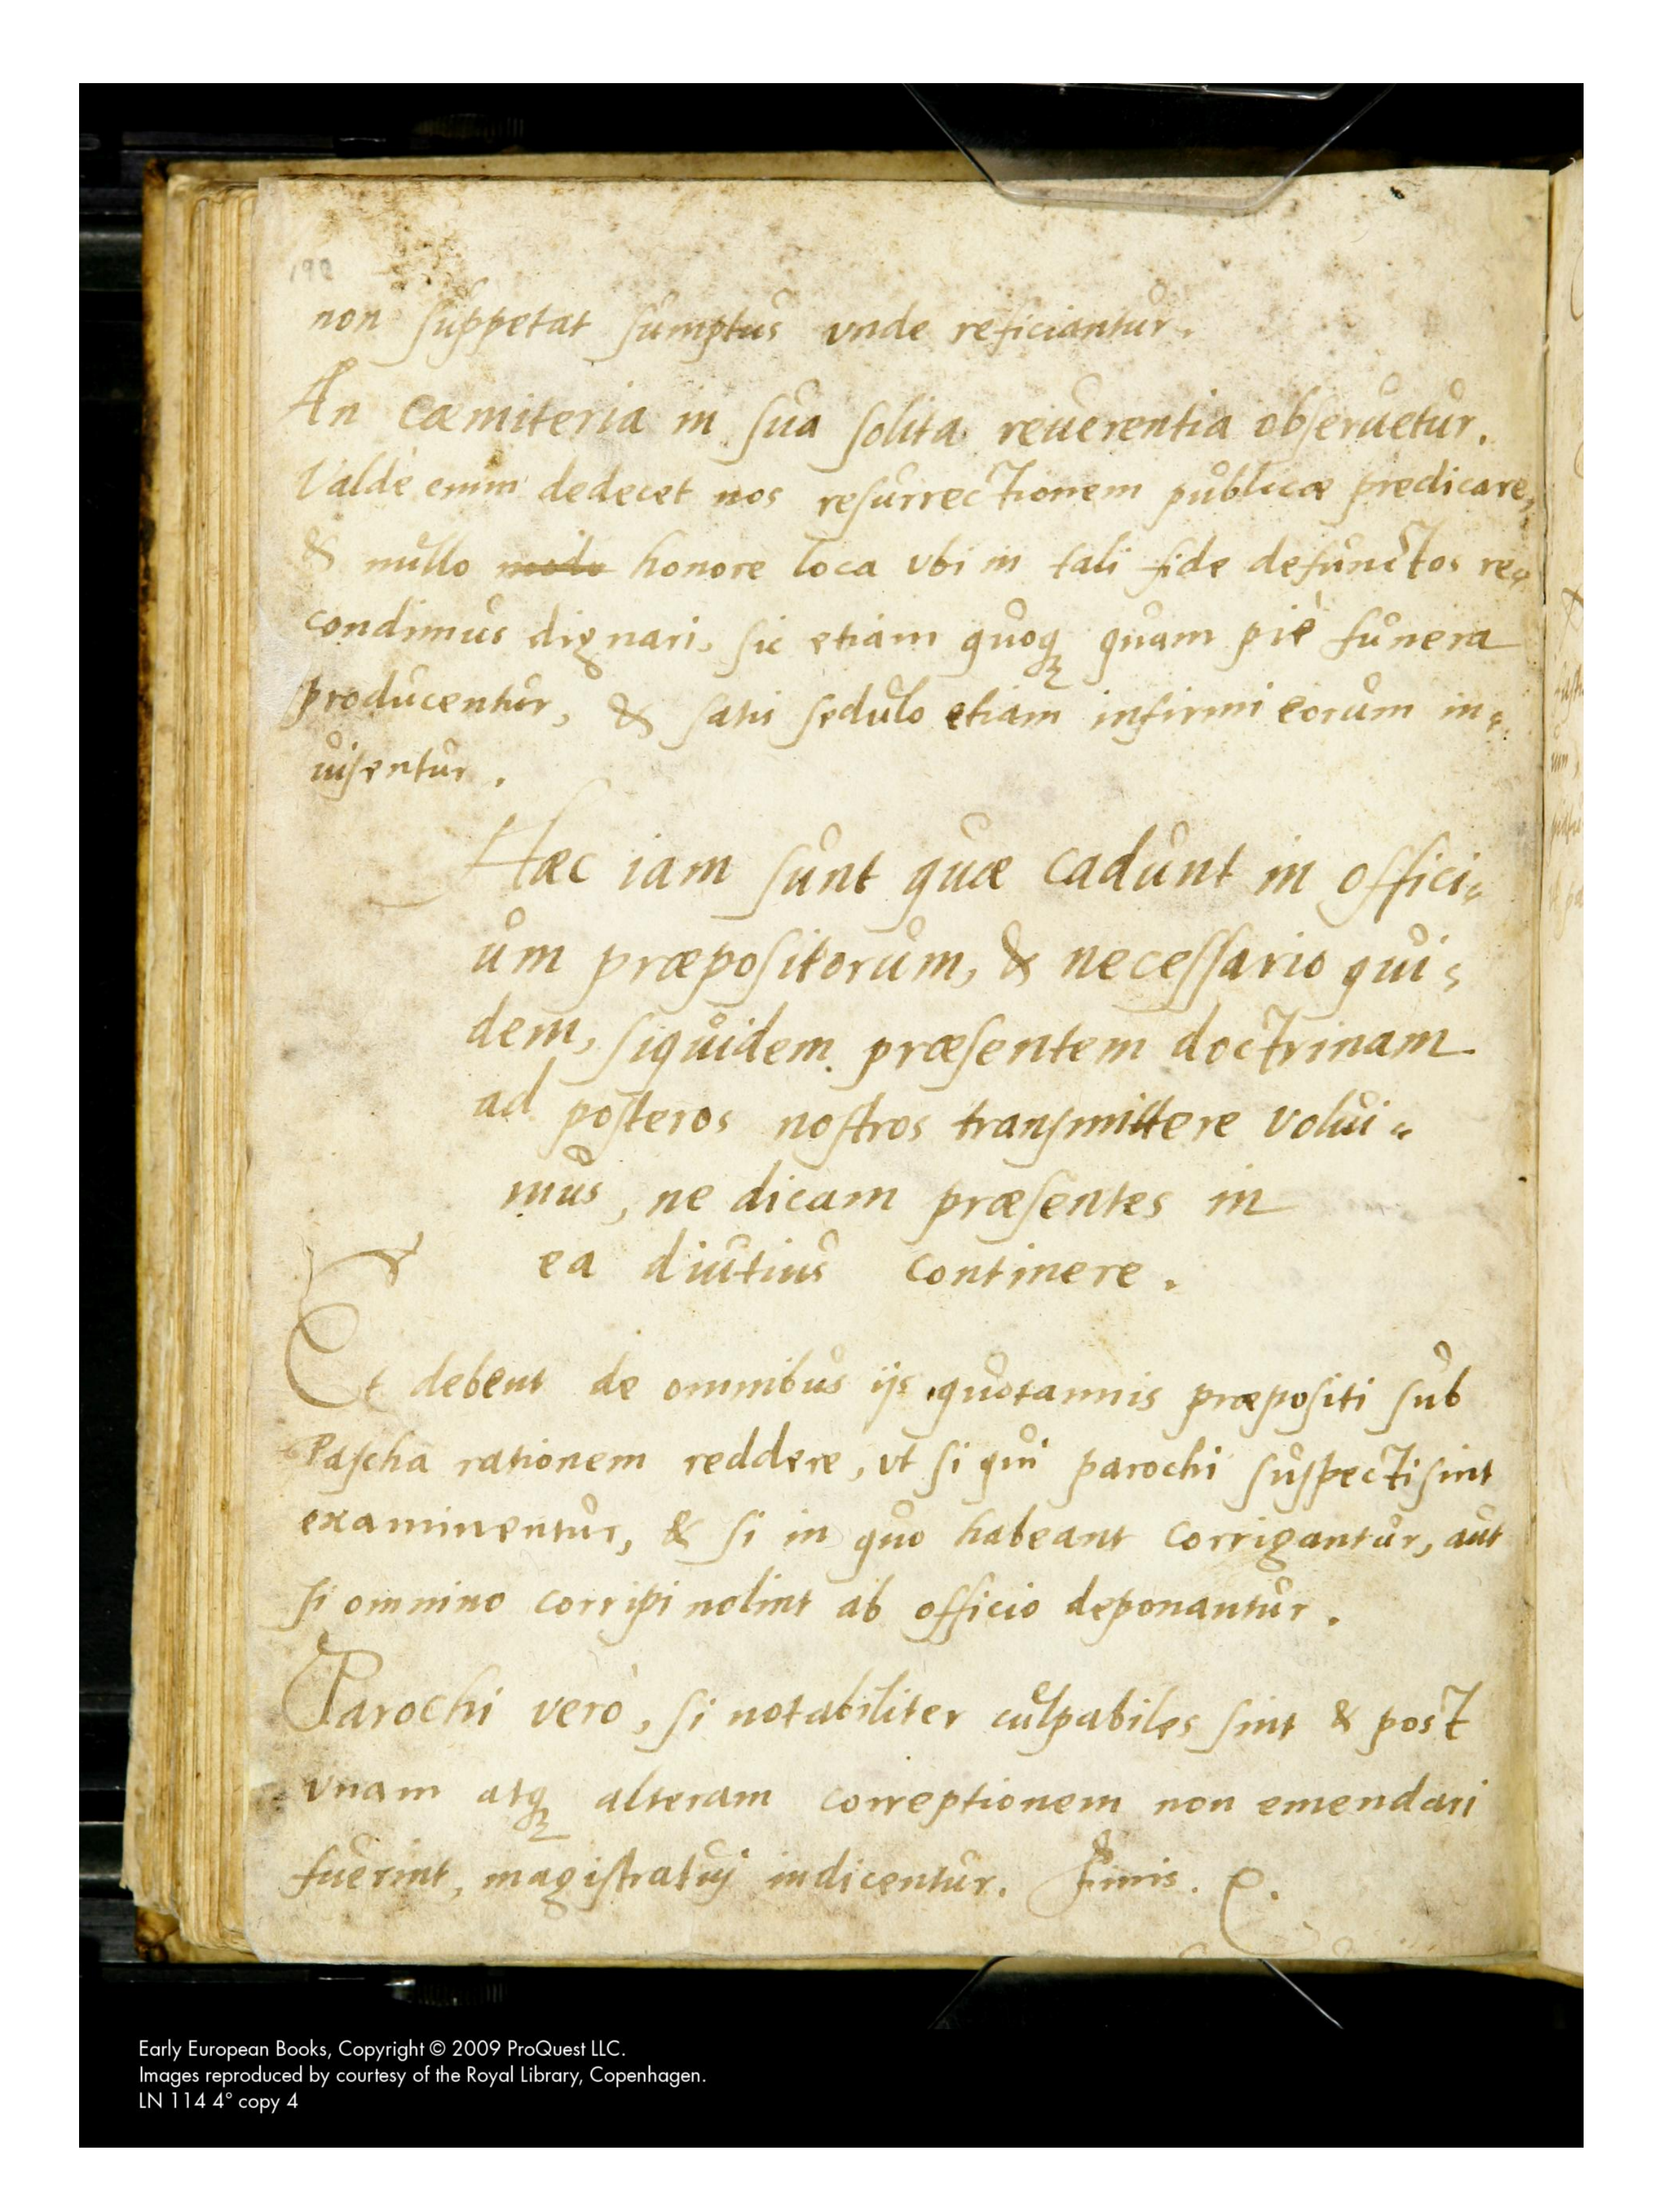 190
non suppetat sumptus vnde reficiantur.
An cœmiteria in sua solita reuerentia obseruetur.
Valdè enim dedecet nos resurrectionem publicæ predicare,
& nullo modo honore loca vbi in tali fide defunctos re=
condimus dignari, sic etiam quoq; quam piè funera
producentur, & satis sedulo etiam infirmi eorum in=
uisentur.
Hæc iam sunt quæ cadunt in offici=
um præpositorum, & necessario qui=
dem, siquidem præsentem doctrinam
ad posteros nostros transmittere volui=
mus, ne dicam præsentes in
ea diutius continere.
Et debent de omnibus ijs quotannis præpositi sub
Pascha rationem reddere, vt si qui parochi suspecti sint
examinentur, & si in quo habeant corrigantur, aut
si omnino corripi nolint ab officio deponantur.
Parochi verò, si notabiliter culpabiles sint & post
vnam atq; alteram correptionem non emendari
fuerint, magistratuj indicentur. Finis.
Early European Books, Copyright © 2009 ProQuest LLC.
Images reproduced by courtesy of the Royal Library, Copenhagen.
LN 114 4° copy 4